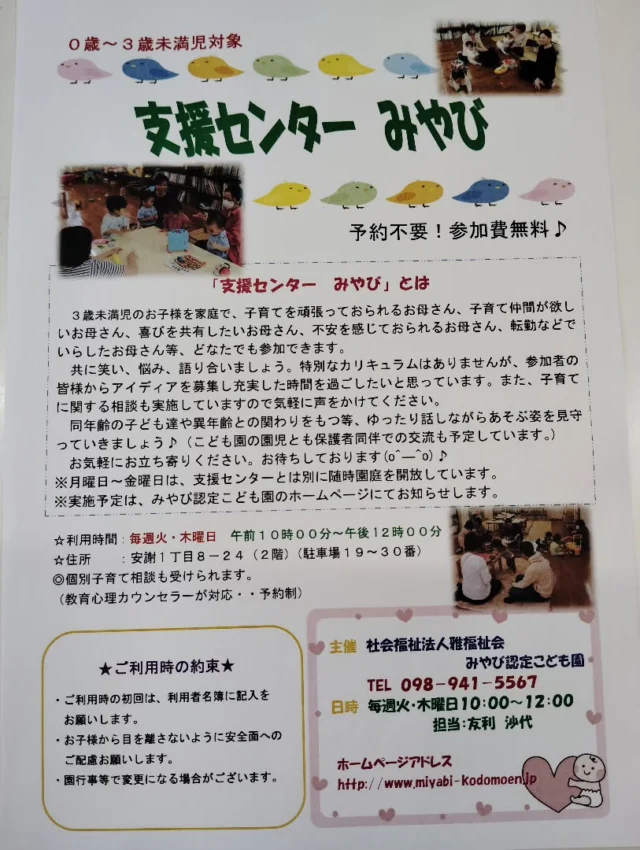 ０歳～３歳未満児対象
支援センター　みやび
予約不要！参加費無料♪
「支援センター　みやび」とは
３歳未満児のお子様を家庭で、子育てを頑張っておられるお母さん、子育て仲間が欲し
いお母さん、喜びを共有したいお母さん、不安を感じておられるお母さん、転勤などで
いらしたお母さん等、どなたでも参加できます。
共に笑い、悩み、語り合いましょう。特別なカリキュラムはありませんが、参加者の
皆様からアイディアを募集し充実した時間を過ごしたいと思っています。また、子育て
に関する相談も実施していますので気軽に声をかけてください。
同年齢の子ども達や異年齢との関わりをもつ等、ゆったり話しながらあそぶ姿を見守
っていきましょう♪（こども園の園児とも保護者同伴での交流も予定しています。）
お気軽にお立ち寄りください。お待ちしております(o^―^o)♪
※月曜日～金曜日は、支援センターとは別に随時園庭を開放しています。
※実施予定は、みやび認定こども園のホームページにてお知らせします。
☆利用時間：毎週火・木曜日　午前１０時００分～午後１２時００分
☆住所　　：安謝１丁目８－２４（２階）（駐車場１９～３０番）
◎個別子育て相談も受けられます。
（教育心理カウンセラーが対応・・予約制）
★ご利用時の約束★
・ご利用時の初回は、利用者名簿に記入を
お願いします。
・お子様から目を離さないように安全面への
ご配慮お願いします。
・園行事等で変更になる場合がございます。
主催　社会福祉法人雅福祉会
みやび認定こども園
TEL 098-941-5567
日時　毎週火・木曜日10:00～12:00
担当：友利　沙代
ホームページアドレス
http://www.miyabi-kodomoen.jp